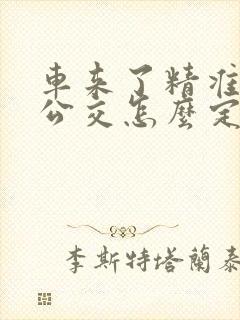 車來了精准
公交怎麼定
李斯特塔蘭泰